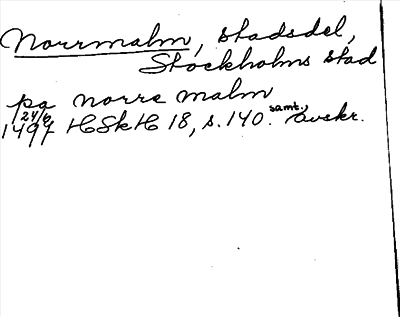 Norrmalm, stadsdel,
Stockholms stad
pa norre malm
24/8
1497 HSkH 18, s. 140. samt. avskr.